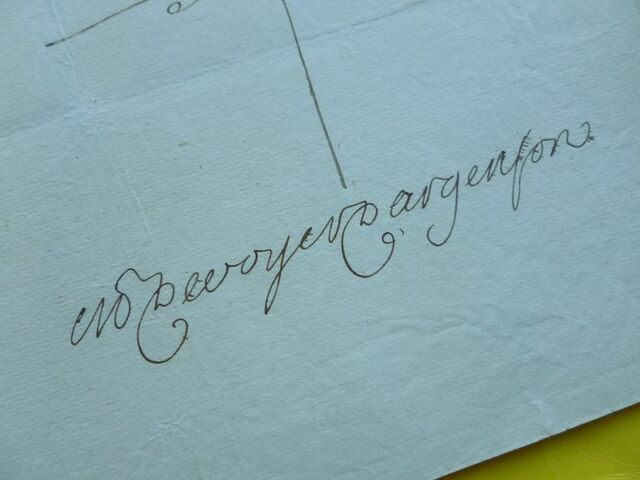 MR Devoyer Dargenson